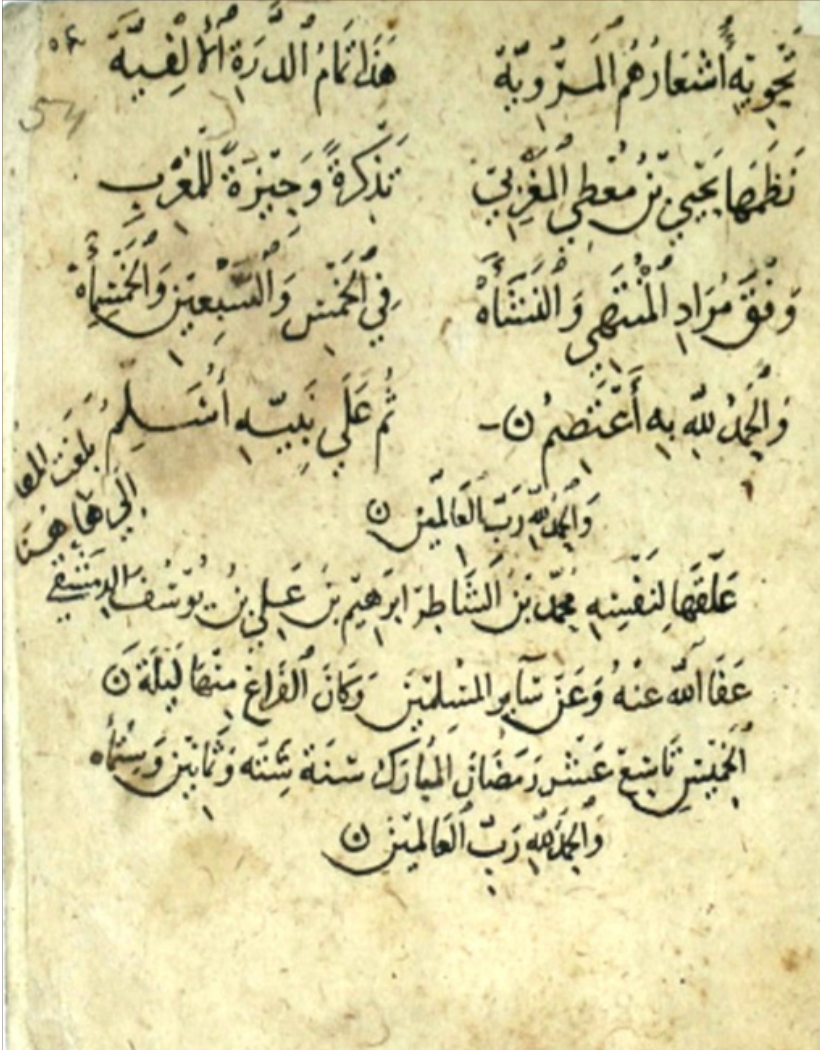 نَحْوِيّة أَشْعَارُهُم المَرْوِيَّة هَذَا تَمَامُ الدُّرَةِ الأَلْفِيَّة
نَظَمَهَا يَحْيَي بْنُ مُعْطِي المَغْرِبِي تَذْكِرَةً وَجِيْزَةً لِلمُعْرِبِ
وَفْقَ مُرَادِ الْمُنْتَهِي وَالنَشْأَهْ فِي الخَمْسِ وَالسَّبْعِيْنَ وَالخَمْسِمِأَهْ
وَالحَمْدُ لله بِهِ أَعْتَصِمُ ن ثُم عَلَي نَبِيّهِ أُسَلِمُ
بلغت المقا
إلَي هَاهُنَا
وَالحَمْدُ لله رَبّ العَالمِيْنَ ن
عَلَّقَهَا لِنَفْسِهِ محمّد بْنُ الشَّاطِرِ ابرَهِيْم بْنِ عَلِي بْنِ يُوْسُفَ الدِمَشْقِي
عَفَا الله عَنْهُ وَعَنْ سَآيرِ المسْلِمْينَ وَكَانَ الفَرَاغ مِنْهَا لَيْلَة ن
الخَمِيْسِ تَاسِعْ عَشْر رَمَضَان المُبارَك سَنَة سِتّه وَثَمانيْن وَسِتْمأه
وَالحَمْدُ لله رَبّ العَالمِيْنَ ن
٥٤
54